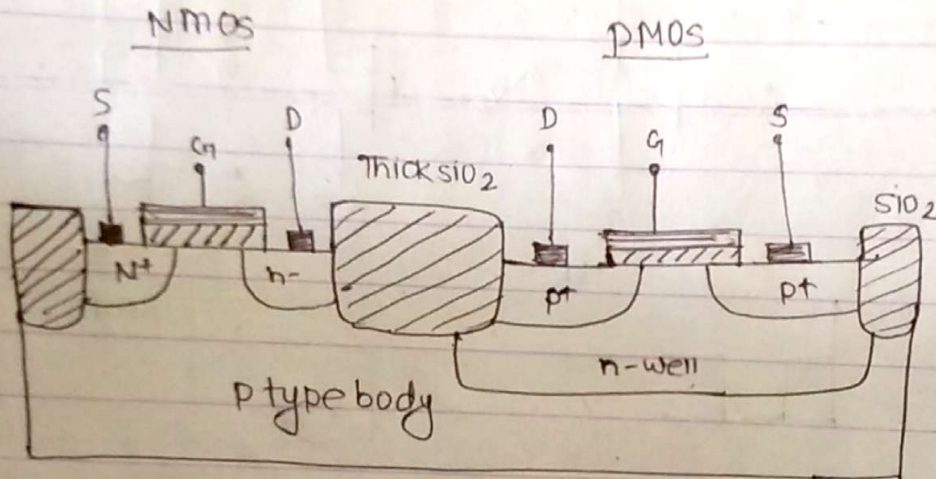 NMOS PMOS
S G D D G S
Thick SiO2
SiO2
N+ n- p+ p+
n-well
p type body